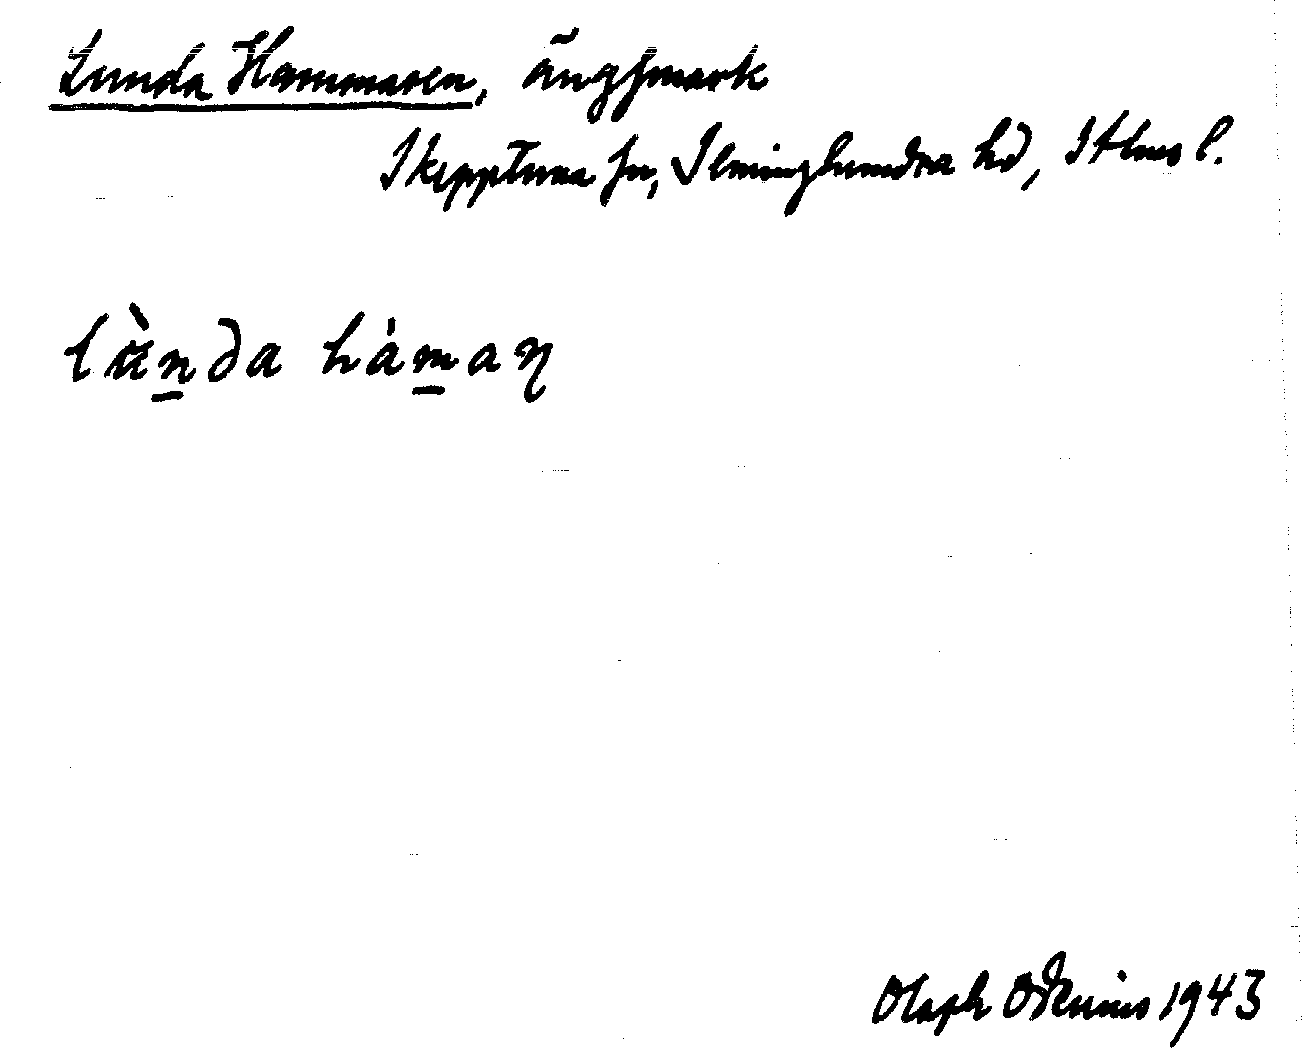 Lunda Hammaren, ängsmark
Skepptuna sn, Seminghundra hd, Sthms l.
lùn̲da hàm̲aɳ
Olaph Odenius 1943